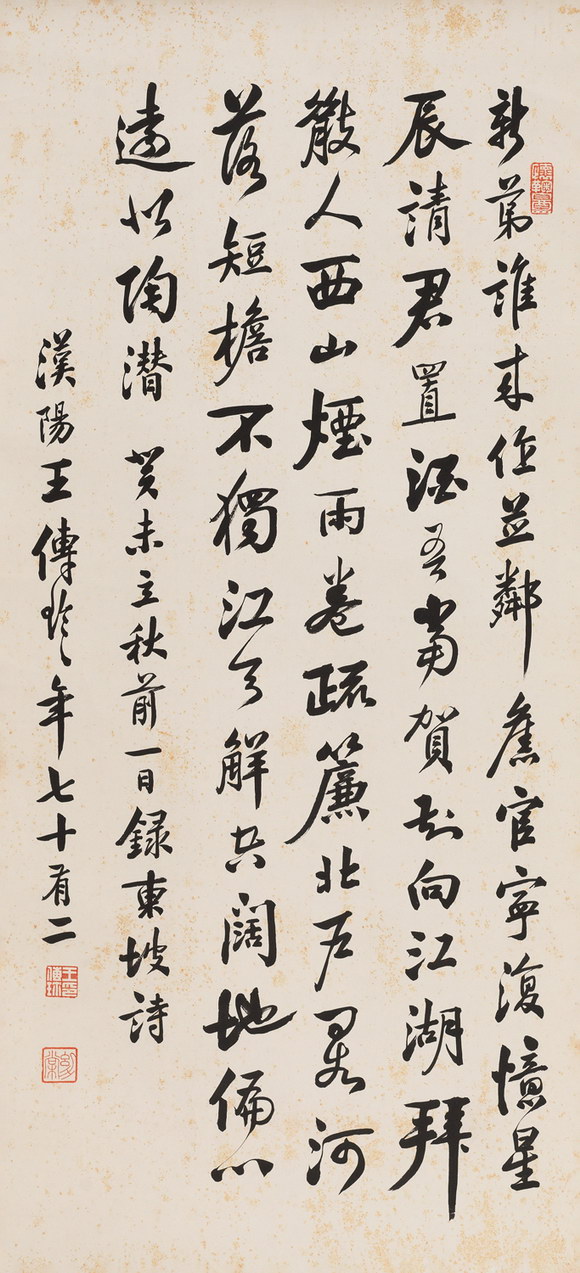 新第誰來作並鄰舊官寧復憶星
辰請君置酒吾當賀知向江湖拜
散人西山煙雨卷疏簾北戶星河
落短檐不獨江天解空闊地偏心
遠似陶潛 癸未立秋前一日錄東坡詩
漢陽王傳年七十有二